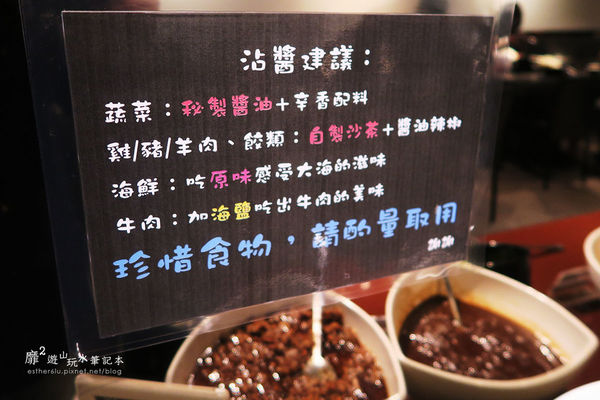 沾醬建議：
蔬菜：秘製醬油+辛香配料
雞/豬/羊肉、餃類：自製沙茶+醬油辣椒
海鮮：吃原味感受大海的滋味
牛肉：加海鹽吃出牛肉的美味
珍惜食物，請酌量取用
靡²遊山玩水筆記本
esther6lu.pixnet.net/blog